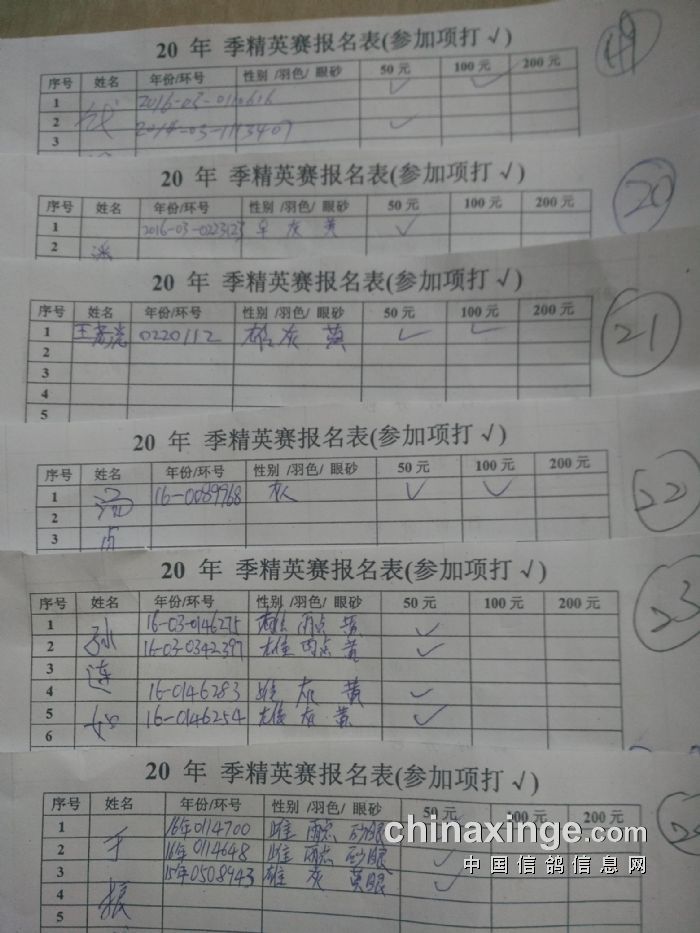 20 年 季精英赛报名表(参加项打 √)
19
序号 姓名 年份/环号 性别 /羽色/ 眼砂 50 元 100 元 200 元
1 2016-03-0110616 √ √
2 √
3
20 年 季精英赛报名表(参加项打 √)
20
序号 姓名 年份/环号 性别 /羽色/ 眼砂 50 元 100 元 200 元
1 2016-03-0223123 灰 黄 √
2
20 年 季精英赛报名表(参加项打 √)
21
序号 姓名 年份/环号 性别 /羽色/ 眼砂 50 元 100 元 200 元
1 0220112 雄 灰 黄 √ √
2
3
4
5
20 年 季精英赛报名表(参加项打 √)
22
序号 姓名 年份/环号 性别 /羽色/ 眼砂 50 元 100 元 200 元
1 16-0089968 灰 √ √
2
3
20 年 季精英赛报名表(参加项打 √)
23
序号 姓名 年份/环号 性别 /羽色/ 眼砂 50 元 100 元 200 元
1 孙 16-03-0146275 雄 雨点 黄 √
2 16-03-0342397 雄 雨点 黄 √
3 连
4 16-0146283 灰 黄 √
5 16-0146254 雄 灰 黄 √
6
20 年 季精英赛报名表(参加项打 √)
序号 姓名 年份/环号 性别 /羽色/ 眼砂 50 元 100 元 200 元
1 于 16年0114700 雌 雨点 砂眼 √
2 16年0114648 雌 雨点 砂眼 √
3 15年0508943 雄 灰 黄眼 √
4 振
5
chinaxinge.com
中国信鸽信息网